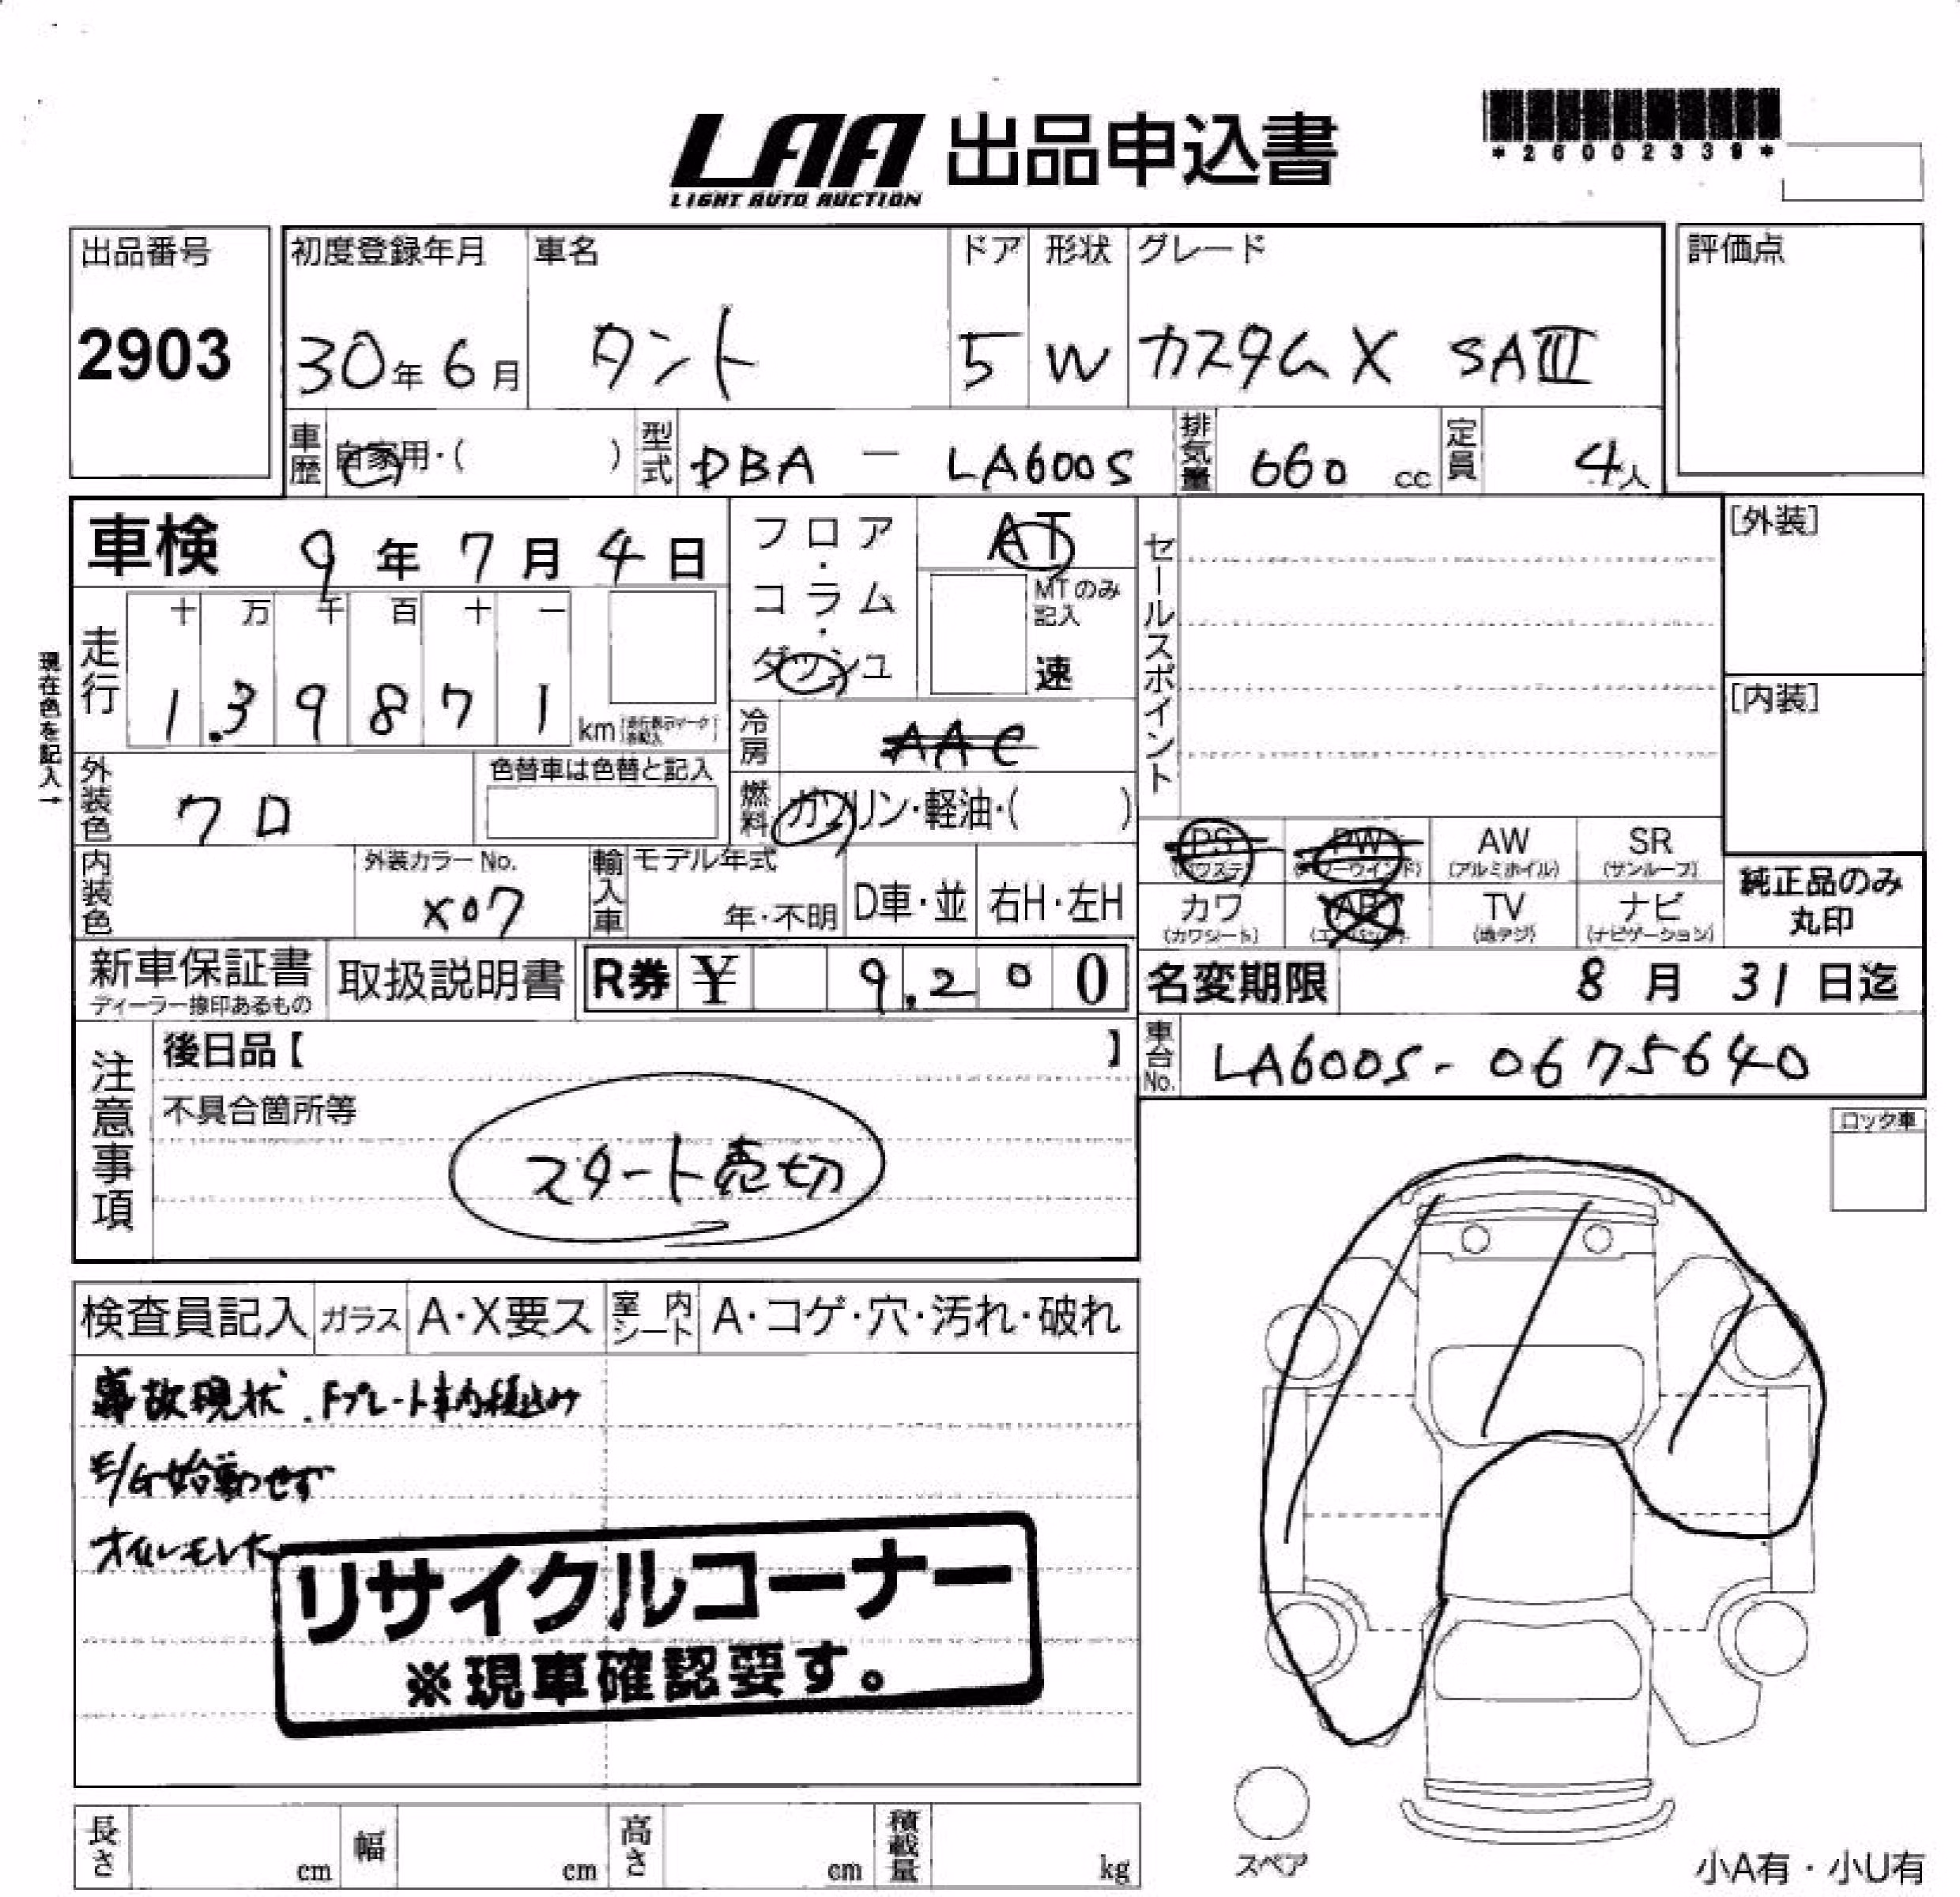 LAA 出品申込書
LIGHT AUTO AUCTION
*26002339*
出品番号 初度登録年月 車名 ドア 形状 グレード 評価点
2903 30年6月 タント 5 W カスタムX SAIII
車歴 自家用・( ) 型式 DBA - LA600S 排気量 660 cc 定員 4人
車検 9年7月4日
フロア・コラム・ダッシュ
AT
MTのみ記入
速
セールスポイント
[外装]
[内装]
現在色を記入→
走行 十 万 千 百 十 一
1.39871 km
冷房 AAC
外装色 クロ
色替車は色替と記入
燃料 ガソリン・軽油・( )
内装色
外装カラーNo.
X07
輸入車 モデル年式
年・不明 D車・並 右H・左H
PS (パワステ) PW (パワーウインド) AW (アルミホイル) SR (サンルーフ)
カワ (カワシート) AB (エアバッグ) TV (地デジ) ナビ (ナビゲーション)
純正品のみ
丸印
新車保証書
ディーラー捺印あるもの
取扱説明書
R券 ¥ 9.200
名変期限 8月31日迄
車台No. LA600S-0675640
注意事項
後日品【 】
不具合箇所等
スタート売切
ロック車
検査員記入 ガラス A・X要ス 室内シート A・コゲ・穴・汚れ・破れ
事故現状.Fプレート車内積込み
E/G始動せず
オイルモレ大
リサイクルコーナー
※現車確認要す。
長さ cm 幅 cm 高さ cm 積載量 kg
スペア
小A有・小U有